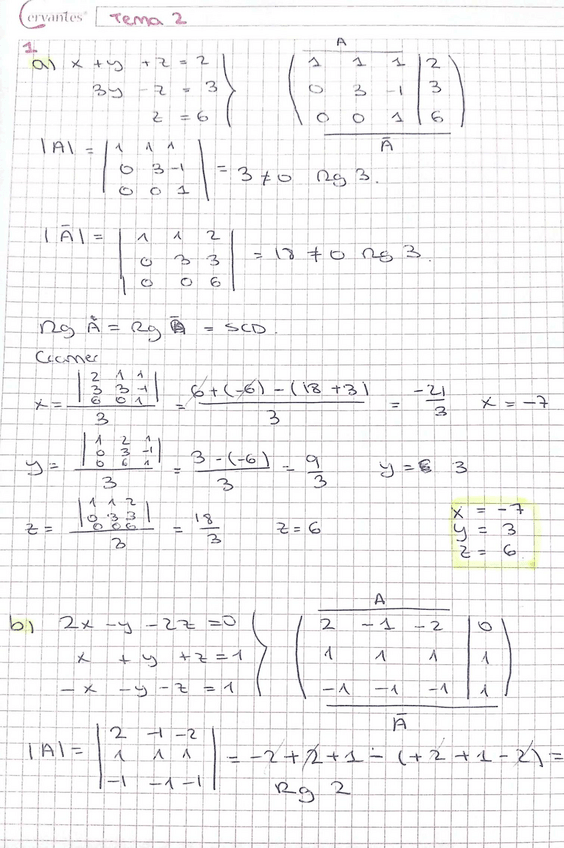 Cervantes Tema 2
1
a) x + y + z = 2
3y - z = 3
z = 6
A
1 1 1 | 2
0 3 -1 | 3
0 0 1 | 6
Ā
|A| = | 1 1 1 |
0 3 -1
0 0 1
= 3 ≠ 0 Rg 3.
|Ā| = | 1 1 2 |
0 3 3
0 0 6
= 18 ≠ 0 Rg 3.
Rg A = Rg Ā = SCD.
Cramer
x = | 2 1 1 |
3 3 -1
6 0 1
3
= 6 + (-6) - (18 + 3) / 3 = -21/3 x = -7
y = | 1 2 1 |
0 3 -1
0 6 1
3
= 3 - (-6) / 3 = 9/3 y = 3
z = | 1 1 2 |
0 3 3
0 0 6
3
= 18/3 z = 6
x = -7
y = 3
z = 6
b) 2x - y - 2z = 0
x + y + z = 1
-x - y - z = 1
A
2 -1 -2 | 0
1 1 1 | 1
-1 -1 -1 | 1
Ā
|A| = | 2 -1 -2 |
1 1 1
-1 -1 -1
= -2 + 2 + 1 - (+2 + 1 - 2) =
Rg 2